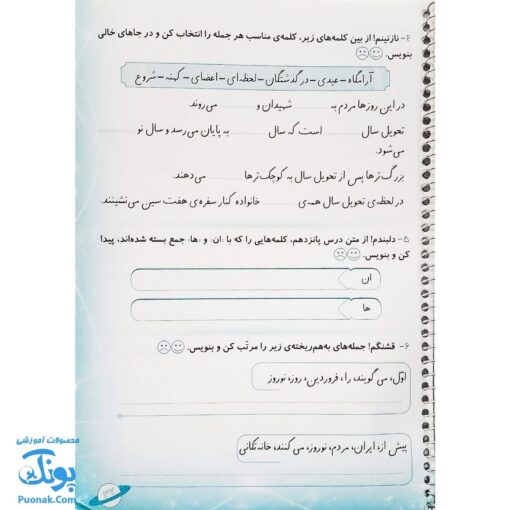 ۴- نازنینم! از بین کلمه‌های زیر، کلمه‌ی مناسب هر جمله را انتخاب کن و در جاهای خالی
بنویس.
آرامگاه - عیدی - درگذشتگان - لحظه‌ای - اعضای - کهنه - شروع
در این روزها مردم به شهیدان و می‌روند.
تحویل سال است که سال به پایان می‌رسد و سال نو
می‌شود.
بزرگ‌ترها پس از تحویل سال به کوچک‌ترها می‌دهند.
در لحظه‌ی تحویل سال همه‌ی خانواده کنار سفره‌ی هفت سین می‌نشینند.
۵- دلبندم! از متن درس پانزدهم، کلمه‌هایی را که با «ان» و «ها» جمع بسته شده‌اند، پیدا
کن و بنویس.
ان
ها
۶- قشنگم! جمله‌های به‌هم‌ریخته‌ی زیر را مرتّب کن و بنویس.
اوّل، می گویند، را، فروردین، روز، نوروز
پیش از، ایران، مردم، نوروز، می کنند، خانه تکانی
محصولات آموزشی
پونک
Puonak.Com